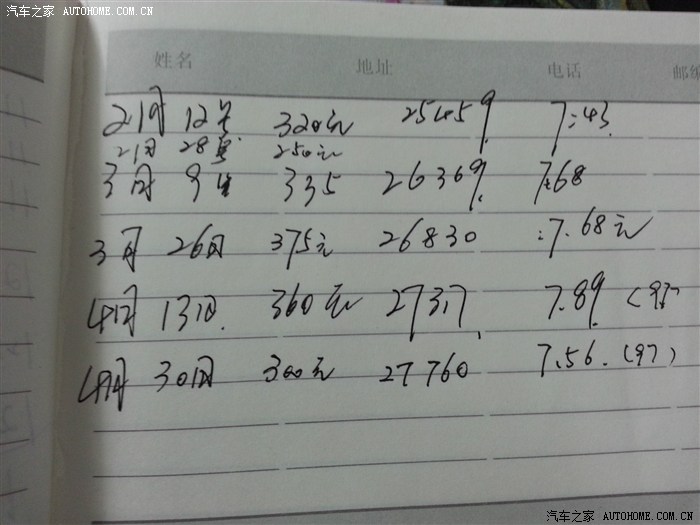 汽车之家 AUTOHOME.COM.CN
姓名 地址 电话 邮编
2月 12号 320元 25459 7:43
2月 28号 250元
3月 9号 335 26369 7.68
3月 26日 375元 26830 :7.68元
4月 13日 360元 27317 7.89 (97
4月 30日 300元 27760 7.56 (97)
汽车之家 AUTOHOME.COM.CN